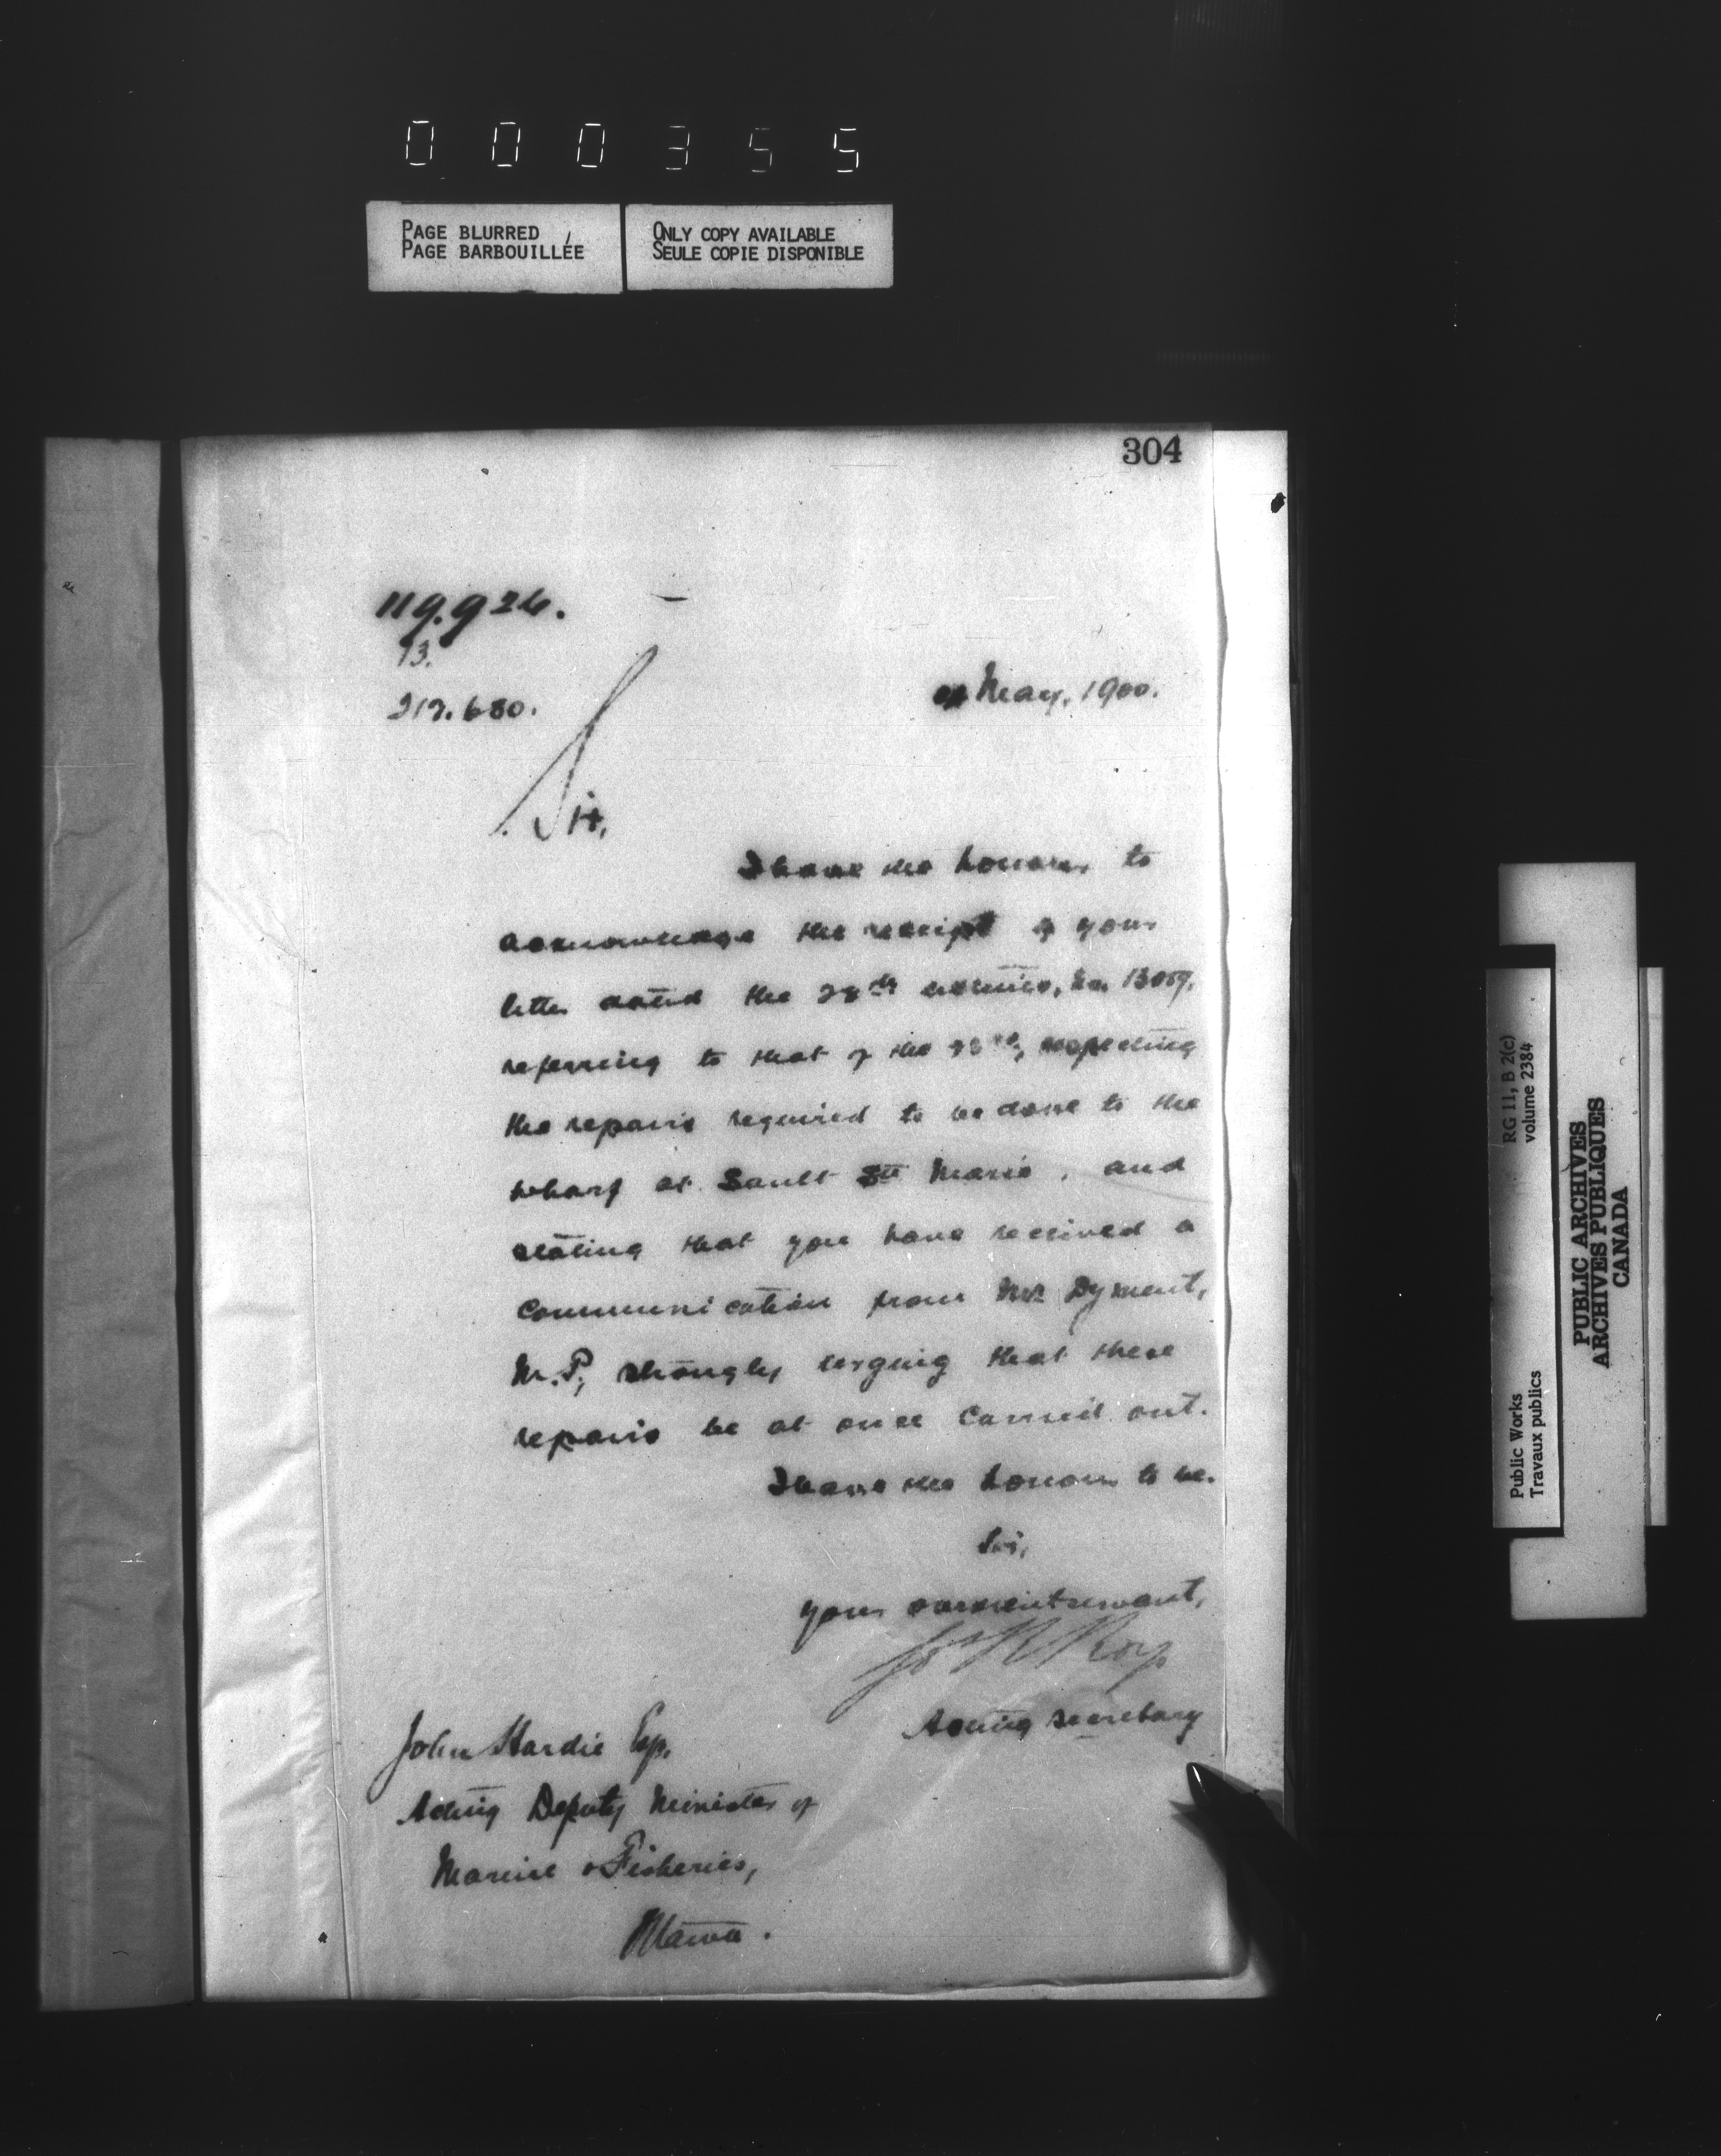 000355
PAGE BLURRED
PAGE BARBOUILLÉE
ONLY COPY AVAILABLE
SEULE COPIE DISPONIBLE
304
119.926.
13.
212.680.
May, 1900.
Sir,
I have the honour to
acknowledge the receipt of your
letter dated the 28th ultimo, No. 13059,
referring to that of the 23rd, respecting
the repairs required to be done to the
wharf at Sault Ste Marie, and
stating that you have received a
communication from Mr. Dyment,
M.P., strongly urging that these
repairs be at once carried out.
I have the honour to be.
Sir,
your obedient servant,
Jos R Roy
Acting Secretary
John Hardie Esq.
Acting Deputy Minister of
Marine & Fisheries,
Ottawa.
RG 11, B 2(c)
volume 2384
Public Works
Travaux publics
PUBLIC ARCHIVES
ARCHIVES PUBLIQUES
CANADA